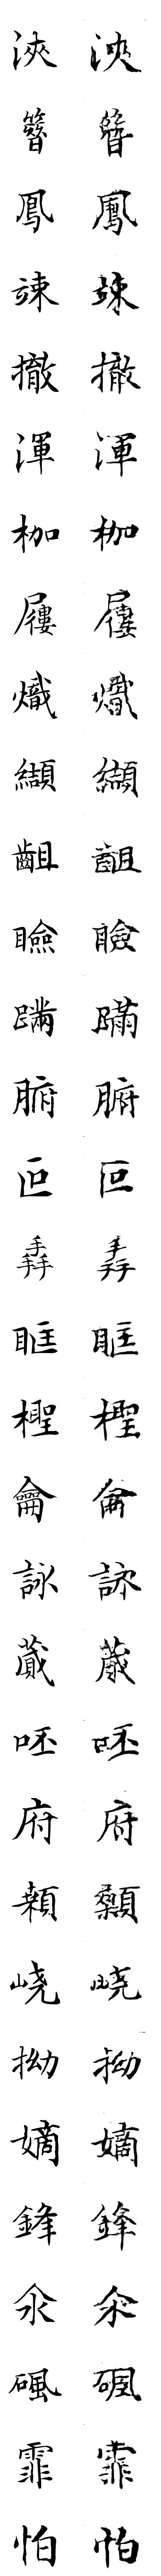 浹 浹
簪 簪
鳳 鳳
竦 竦
撤 撤
渾 渾
枷 枷
屨 屨
熾 熾
纈 纈
齟 齟
瞼 瞼
蹣 蹣
腑 腑
叵 叵
掱 掱
眶 眶
檉 檉
龠 龠
詠 詠
蕆 蕆
呸 呸
府 府
顙 顙
嶢 嶢
拗 拗
嫡 嫡
鋒 鋒
氽 氽
碸 碸
霏 霏
怕 怕